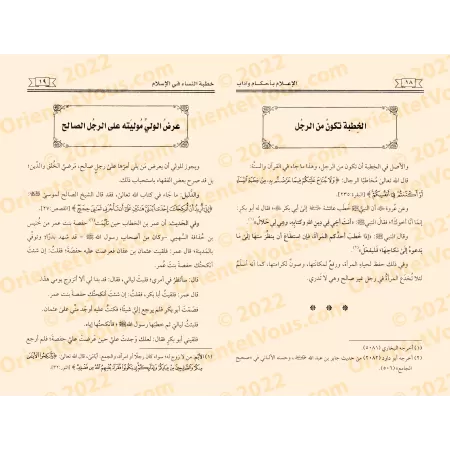 ١٨
الإعلام بأحكام وآداب
الخطبة تكون من الرجُل
والأصل في الخطبة أن تكون من الرجل، وهذا ما جاء في القرآن والسنَّة.
قال الله تعالى مُخاطبًا الرجال: ﴿وَلَا جُنَاحَ عَلَيْكُمْ فِيمَا عَرَّضْتُمْ بِهِ مِنْ خِطْبَةِ النِّسَاءِ
أَوْ أَكْنَنْتُمْ فِي أَنْفُسِكُمْ﴾ [البقرة: ٢٣٥].
وعن عُروة أن النبي ﷺ خطب عائشة إلى أبي بكر، فقال له أبو بكر:
إنما أنا أخوك! فقال النبي ﷺ: «أنت أخي في دين الله وكتابه، وهي لي حلال»(١).
وقال النبي ﷺ: «إذا خطب أحدُكم المرأة، فإن استطاع أن ينظر منها إلى ما
يدعوه إلى نكاحها؛ فليفعل»(٢).
وفي ذلك حفظ لحياء المرأة، ورفعٌ لمكانتها، وصونٌ لكرامتها، كما أنه أسلمُ
لئلا تُخدع المرأة في رجل غير صالح وهي لا تدري.
* * *
(١) أخرجه البخاري (٥٠٨١).
(٢) أخرجه أبو داود (٢٠٨٢) من حديث جابر بن عبد الله، وحسنه الألباني في «صحيح
الجامع» (٥٠٦).
خطبة النساء في الإسلام
١٩
عرضُ الوليِّ مُوليته على الرجُل الصالح
ويجوز للولي أن يعرض من يلي أمرَها على رجل صالح، مرضيِّ الخُلق والدِّين؛
بل قد صرح بعض الفقهاء باستحباب ذلك.
والدليل: ما جاء في كتاب الله تعالى، فقد قال الشيخ الصالح لموسى
﴿إِنِّي أُرِيدُ أَنْ أُنْكِحَكَ إِحْدَى ابْنَتَيَّ هَاتَيْنِ عَلَى أَنْ تَأْجُرَنِي ثَمَانِيَ حِجَجٍ﴾ [القصص: ٢٧].
وفي الحديث: أن عمر بن الخطاب حين تأيَّمت(١) حفصة بنت عمر من خُنيس
بن حُذافة السَّهمي -وكان من أصحاب رسول الله ﷺ قد شهد بدرًا- وتوفي
بالمدينة؛ قال عمر: فلقيت عثمان بن عفان فعرضت عليه حفصة؛ فقلتُ: إن شئتَ
أنكحتُك حفصة بنت عمر.
قال: سأنظرُ في أمري؛ فلبثتُ لياليَ، فقال: قد بدا لي ألا أتزوج يومي هذا.
قال عمر: فلقيتُ أبا بكر، فقلتُ: إن شئت أنكحتُك حفصة بنت عمر.
فصمت أبو بكر فلم يرجع إليَّ شيئًا؛ فكنتُ عليه أوجد مني على عثمان.
فلبثتُ لياليَ ثم خطبها رسول الله ﷺ؛ فأنكحتُها إياه.
فلقيني أبو بكر فقال: لعلك وجدتَ عليَّ حين عرضت عليَّ حفصة، فلم أرجع
(١) الأيِّم: من لا زوج له؛ سواء كان رجلًا أو امرأة، والجمع: أيامى، قال الله تعالى: ﴿وَأَنْكِحُوا الْأَيَامَى
مِنْكُمْ وَالصَّالِحِينَ مِنْ عِبَادِكُمْ وَإِمَائِكُمْ إِنْ يَكُونُوا فُقَرَاءَ يُغْنِهِمُ اللَّهُ مِنْ فَضْلِهِ﴾ [النور: ٣٢].
© 2022
OrientetVous.com